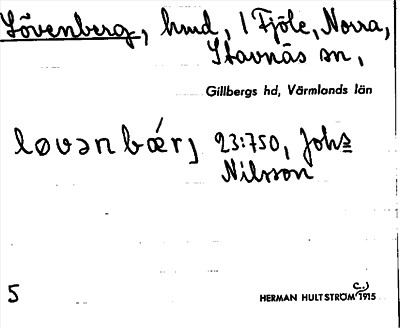 Lövenberg, hmd, 1 Fjöle, Norra,
Stavnäs sn,
Gillbergs hd, Värmlands län
løvənbǽrj 23:750, Johs
Nilsson
5
HERMAN HULTSTRÖM c.) 1915